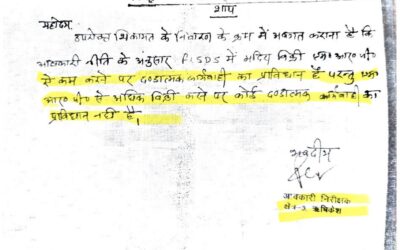 महोदय,
उपरोक्त शिकायत के निवारण के क्रम में अवगत कराना है कि
आबकारी नीति के अनुसार FLSDS में मदिरा बिक्री एम० आर० पी०
से कम करने पर दण्डात्मक कार्यवाही का प्राविधान है परन्तु एम०
आर० पी० से अधिक बिक्री करने पर कोई दण्डात्मक कार्यवाही का
प्राविधान नहीं है।
भवदीय
आबकारी निरीक्षक
क्षेत्र-2 ऋषिकेश